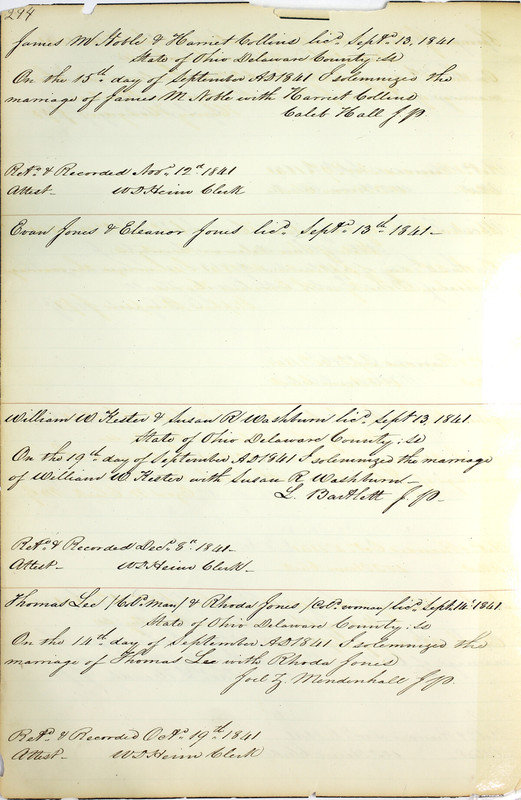 294
James M Noble & Harriet Collins licd. Sept. 13, 1841
State of Ohio Delaware County: ss
On the 15th day of September AD 1841 I solemnized the
marriage of James M Noble with Harriet Collins
Caleb Hall J.P.
Retd. & Recorded Nov. 12th 1841
Attest- W D Heim Clerk
Evan Jones & Eleanor Jones licd. Sept. 13th 1841-
William W. Kester & Susan R Washburn licd. Sept 13, 1841.
State of Ohio Delaware County: ss
On the 19th day of September AD 1841 I solemnized the marriage
of William W Kester with Susan R. Washburn-
L. Bartlett J. P.-
Retd. & Recorded Decr. 8th 1841-
Attest- W D Heim Clerk-
Thomas Lee /C.P. man/ & Rhoda Jones /C.P. woman/ licd. Sept. 14th 1841.
State of Ohio Delaware County: ss
On the 14th day of September AD 1841 I solemnized the
marriage of Thomas Lee with Rhoda Jones
Joel Z. Mendenhall J.P.
Retd. & Recorded Oct. 19th 1841
Attest- W D Heim Clerk